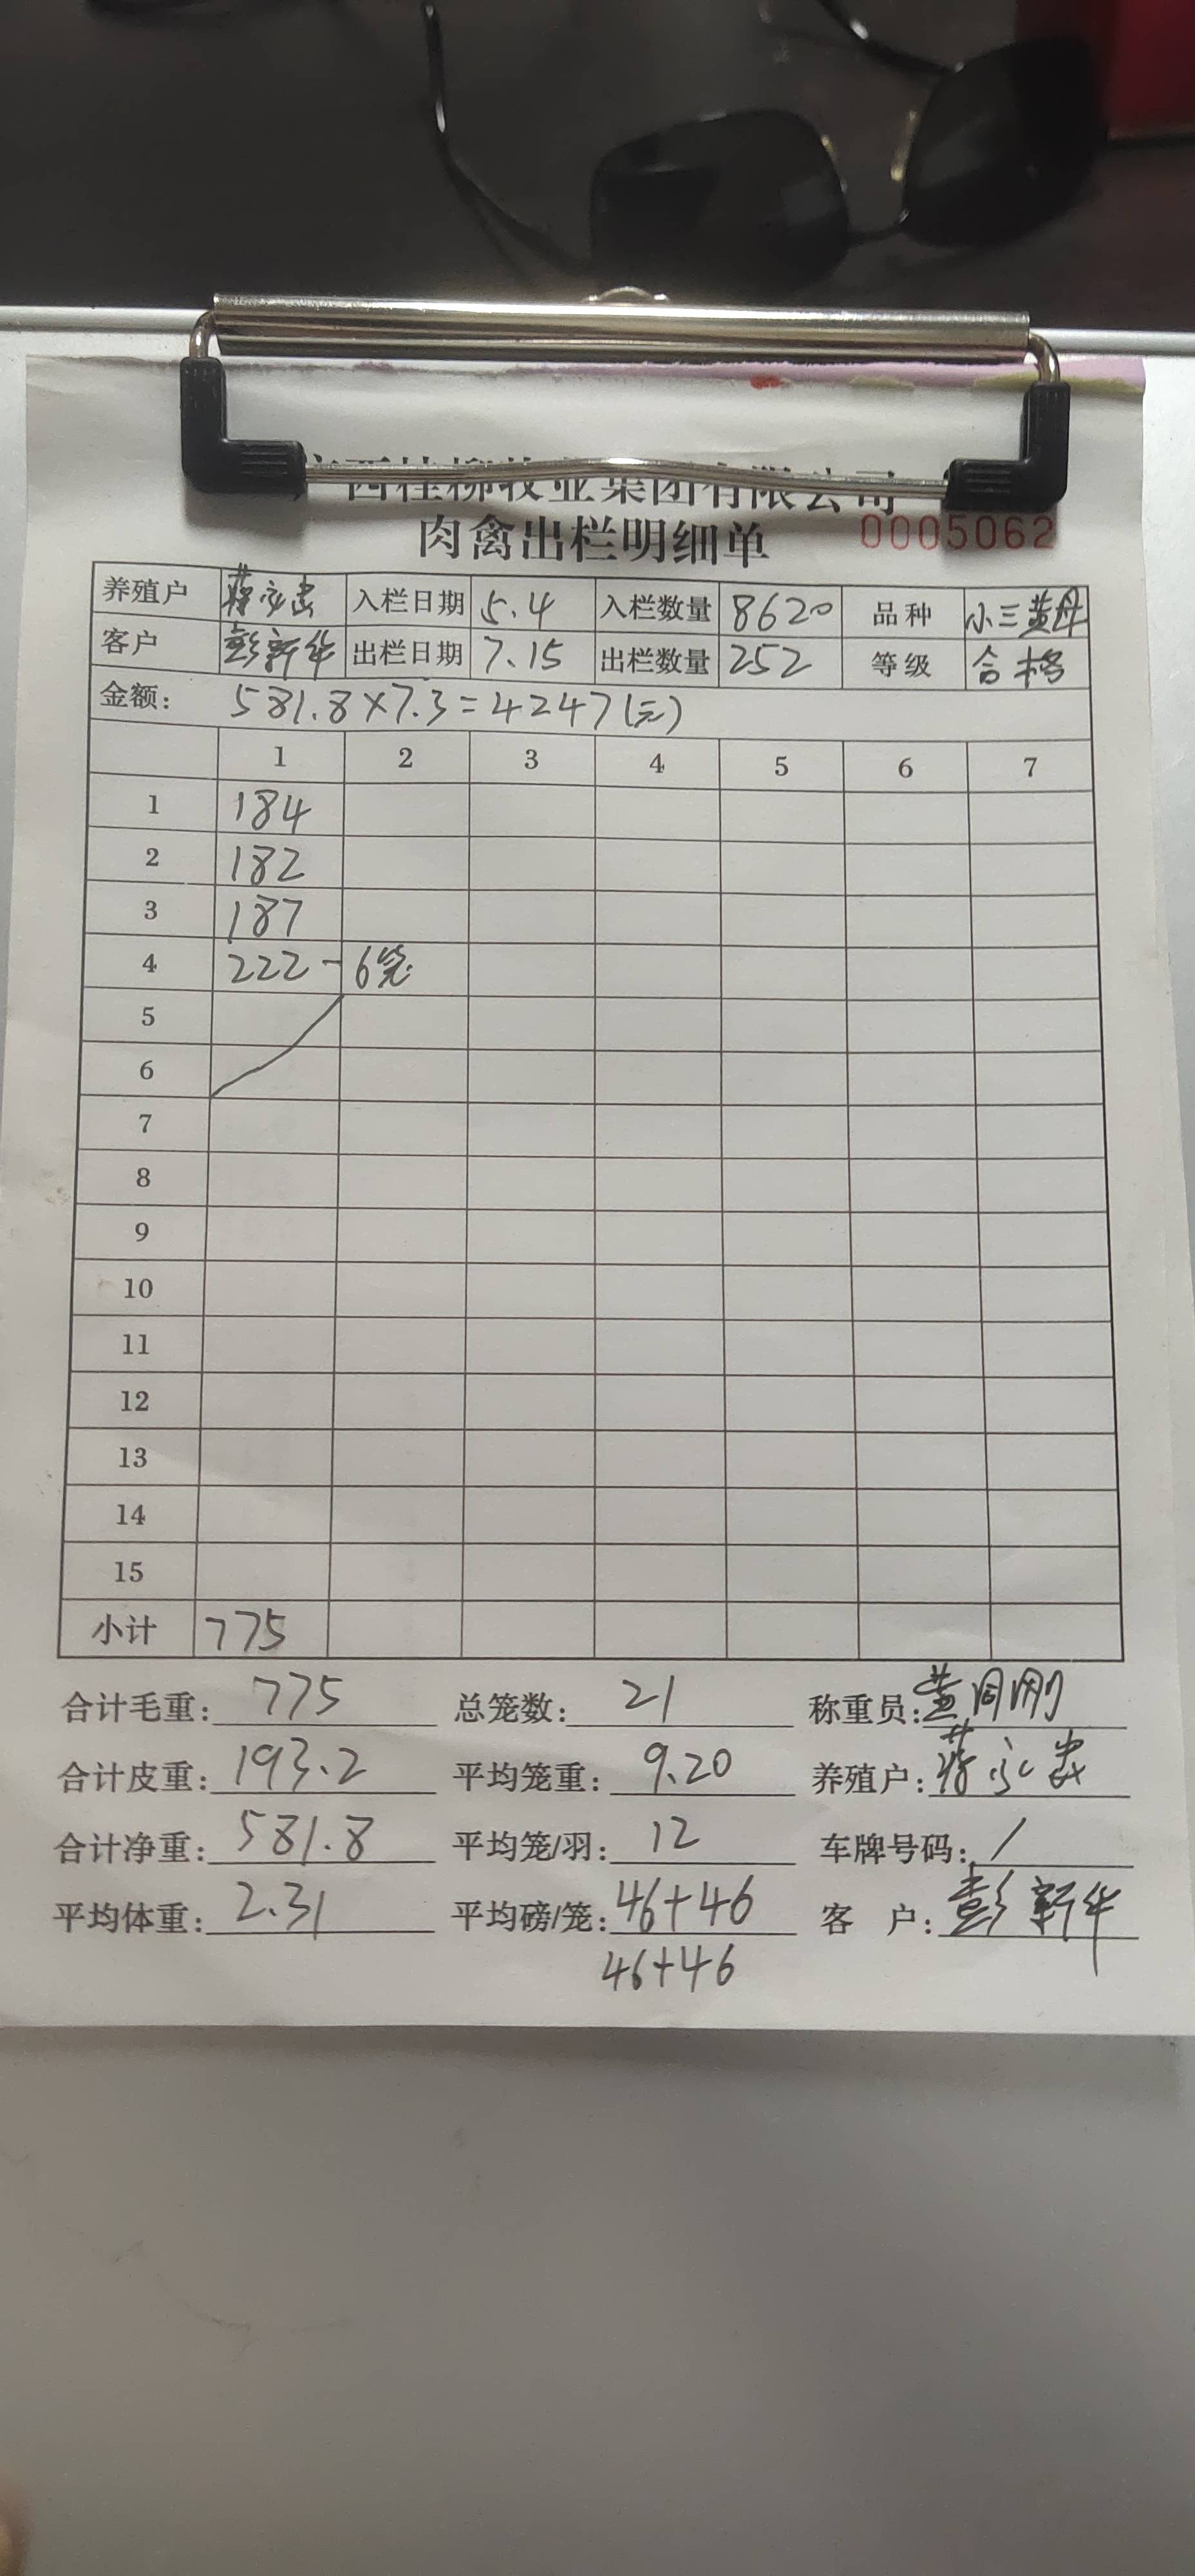 广西桂柳牧业集团有限公司
肉禽出栏明细单 0005062
养殖户 入栏日期 5.4 入栏数量 8620 品种
客户 彭新华 出栏日期 7.15 出栏数量 252 等级 合格
金额: 581.8×7.3=4247(元)
1 2 3 4 5 6 7
1 184
2 182
3 187
4 222 - 6笼
5
6
7
8
9
10
11
12
13
14
15
小计 775
合计毛重: 775 总笼数: 21 称重员:
合计皮重: 193.2 平均笼重: 9.20 养殖户:
合计净重: 581.8 平均笼/羽: 12 车牌号码: /
平均体重: 2.31 平均磅/笼: 46+46 客 户: 彭新华
46+46